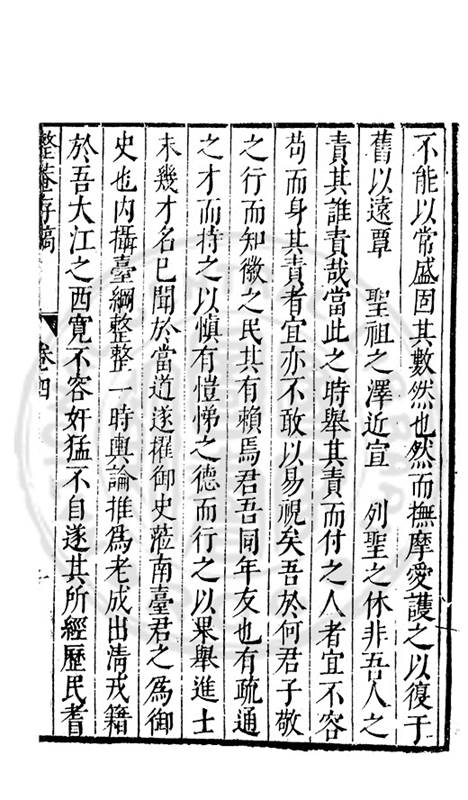 不能以常盛固其數然也然而撫摩愛護之以復于
舊以遠覃　聖祖之澤近宣　列聖之休非吾人之
責其誰責哉當此之時舉其責而付之人者宜不容
苟而身其責者宜亦不敢以易視矣吾於何君子敬
之行而知徽之民其有賴焉君吾同年友也有疏通
之才而持之以慎有愷悌之德而行之以果舉進士
未幾才名已聞於當道遂擢御史蒞南臺君之為御
史也内攝臺綱整整一時輿論推爲老成出清戎籍
於吾大江之西寛不容奸猛不自遂其所經歷民耆
整菴存稿　卷四